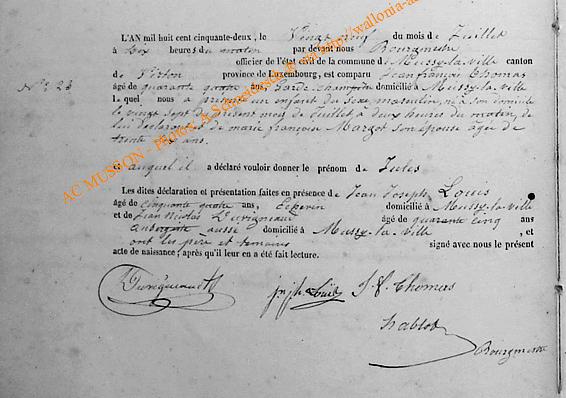 L'AN mil huit cent cinquante-deux, le Vingt neuf du mois de Juillet
à dix heures du matin par devant nous Bourgmestre
officier de l'état civil de la commune de Mussy-la-Ville canton
de Virton province de Luxembourg, est comparu Jean François Thomas
N° 23
âgé de quarante quatre ans, Garde champêtre domicilié à Mussy-la-Ville
lequel nous a présenté un enfant du sexe masculin, né à son domicile
le vingt sept du présent mois de Juillet à deux heures du matin, de
lui déclarant et de marie françoise Margot son épouse agée de
trente ans.
et auquel il a déclaré vouloir donner le prénom de Jules
Les dites déclaration et présentation faites en présence de Jean Joseph Louis
âgé de cinquante quatre ans, domicilié à Mussy-la-Ville
et de Jean Nicolas âgé de quarante cinq ans
aubergiste aussi domicilié à Mussy-la-Ville, et
ont les père et témoins signé avec nous le présent
acte de naissance, après qu'il leur en a été fait lecture.
J. F. Thomas
Bourgmestre
AC MUSSON - Photos A Schoetgesetters via http://wallonia-as